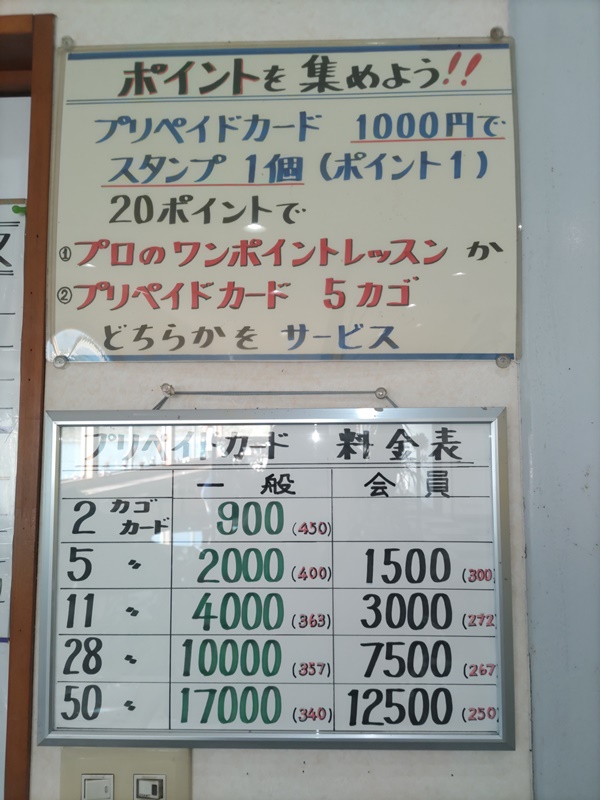 ポイントを集めよう!!
プリペイドカード 1000円で
スタンプ 1個 (ポイント1)
20ポイントで
①プロのワンポイントレッスン か
②プリペイドカード 5カゴ
どちらかを サービス
プリペイドカード 料金表
一般 会員
2 カゴカード 900 (450)
5 〃 2000 (400) 1500 (300)
11 〃 4000 (363) 3000 (272)
28 〃 10000 (357) 7500 (267)
50 〃 17000 (340) 12500 (250)